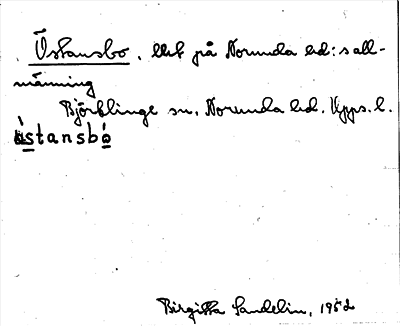 Östansbo, lht på Norunda hd:s all-
männing
Björklinge sn. Norunda hd. Upps. l.
östansbo
Birgitta Sandelin, 1952